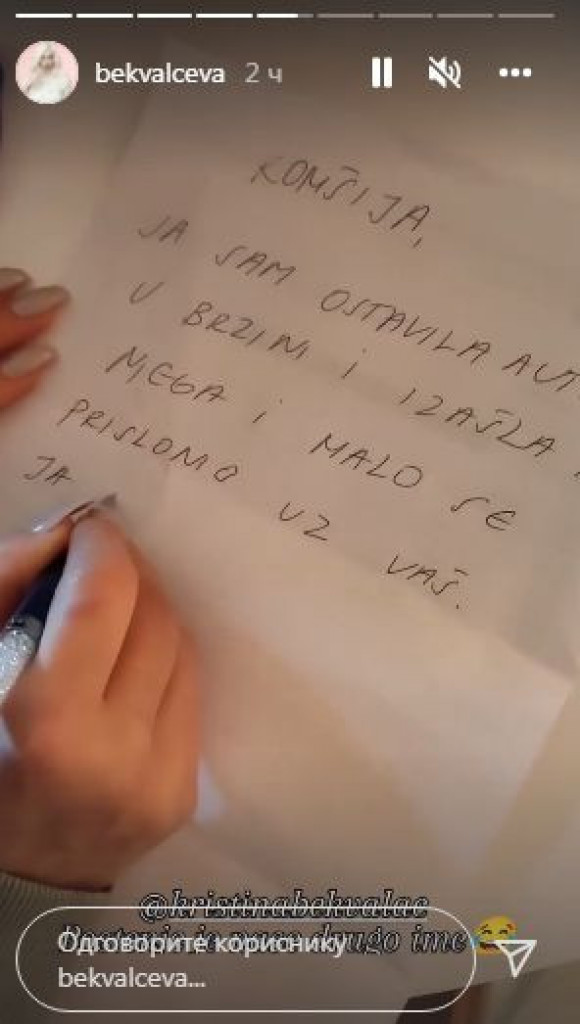 bekvalceva 2 ч
KOMŠIJA,
JA SAM OSTAVILA AUT
U BRZINI I IZAŠLA
NJEGA I MALO SE
PRISLONIO UZ VAŠ.
JA
@kristinabekvalac
je drugo ime 😂
Одговорите кориснику
bekvalceva...